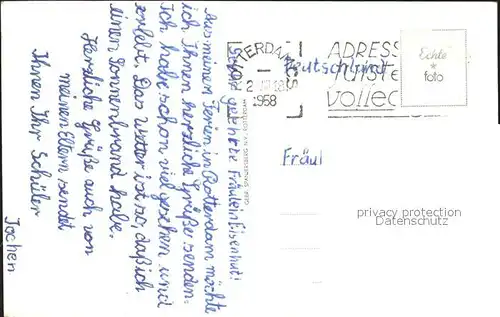 Sehr geehrtes Fräulein Eisenhut!
Aus meinen Ferien in Rotterdam möchte
ich Ihnen herzliche Grüße senden.
Ich habe schon viel gesehen und
erlebt. Das Wetter ist so, daß ich
einen Sonnenbrand habe.
Herzliche Grüße auch von
meinen Eltern sendet
Ihnen Ihr Schüler
Jochen
TTERDAM
2
1958
ADRESS
JUISTE
volled
Echte
foto
Deutschland
Fräul
privacy protection
Datenschutz